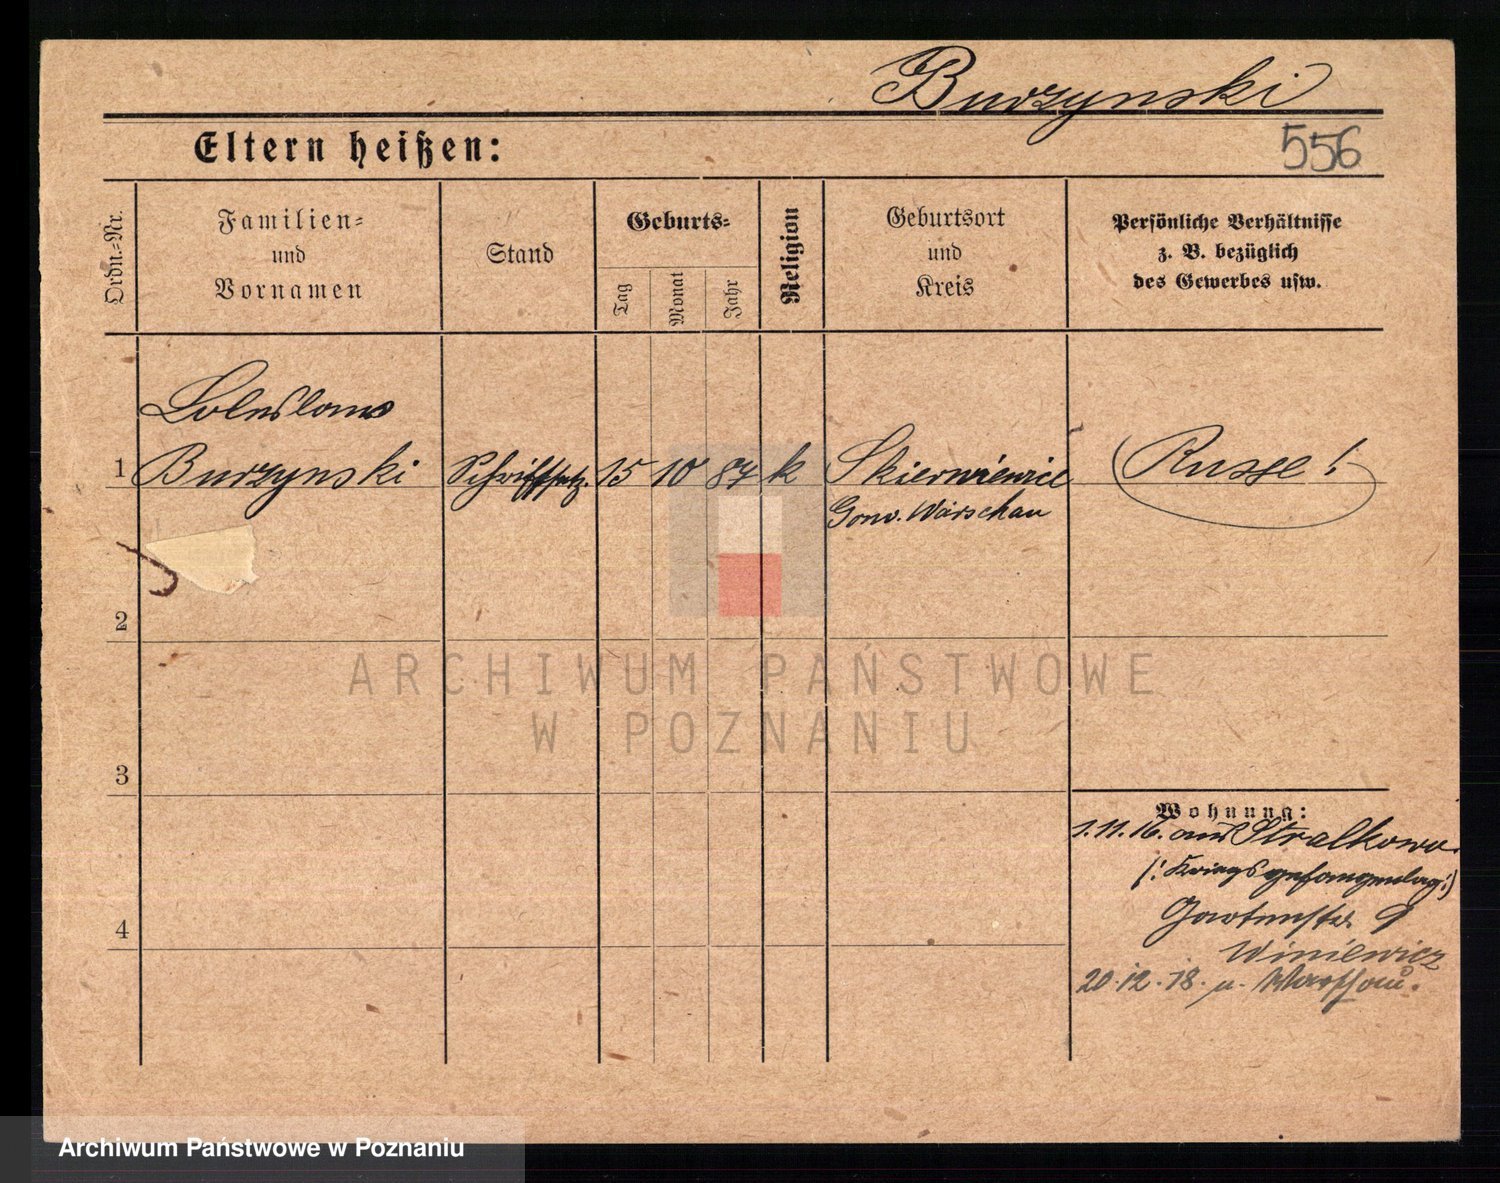 Burzynski
Eltern heißen:
556
Ordn.-Nr.
Familien-
und
Vornamen
Stand
Geburts-
Tag
Monat
Jahr
Religion
Geburtsort
und
Kreis
Persönliche Verhältnisse
z. B. bezüglich
des Gewerbes usw.
Boleslaus
1 Burzynski Schriftsetz. 15 10 87 k Skierniewice Russe!
Gouv. Warschau
2
ARCHIWUM PAŃSTWOWE
W POZNANIU
3
Wohnung:
1.11.16. aus Stralkowo.
(: Kriegsgefangenlag :)
Gartenstr. 9
4
Winiewicz
20.12.18. n. Warschau.
Archiwum Państwowe w Poznaniu